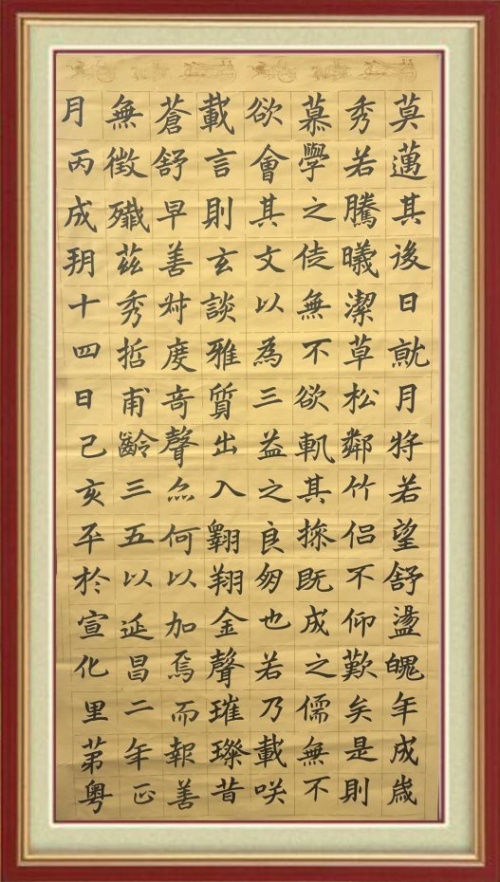 莫邁其後日就月將若望舒盪魄年成歲
秀若騰曦潔草松鄰竹侣不仰歎矣是則
慕學之徒無不欲軌其操既成之儒無不
欲會其文以為三益之良朋也若乃載咲
載言則玄談雅質出入翱翔金聲璀璨昔
蒼舒早善叔度奇聲亦何以加焉而報善
無徵殲茲秀哲甫齡三五以延昌二年正
月丙戌朔十四日己亥卒於宣化里第粵